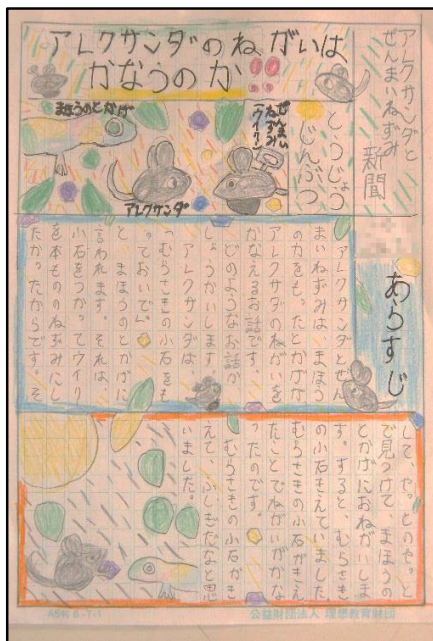 アレクサンダと
ぜんまいねずみ
新聞
アレクサンダのねがいは
かなうのか
とうじょう
じんぶつ
ぜんまい
ねずみ
(ウイリー)
まほうのとかげ
アレクサンダ
あらすじ
アレクサンダとぜん
まいねずみは、まほう
の力をもったとかげが
アレクサンダのねがいを
かなえるお話です。
どのようなお話か
しょうかいします。
アレクサンダは、
「むらさきの小石をも
っておいで。」
と、まほうのとかげに
言われます。それは、
小石をつかってウイリ
を本もののねずみにし
たかったからです。そ
して、やっとのやっと
で見つけて、まほうの
とかげにおねがいしま
す。すると、むらさき
の小石きえていました。
むらさきの小石がきえ
たことでねがいがかな
ったのです。
むらさきの小石がき
えて、ふしぎだなと思
いました。
ASK 6-7-1
公益財団法人 理想教育財団